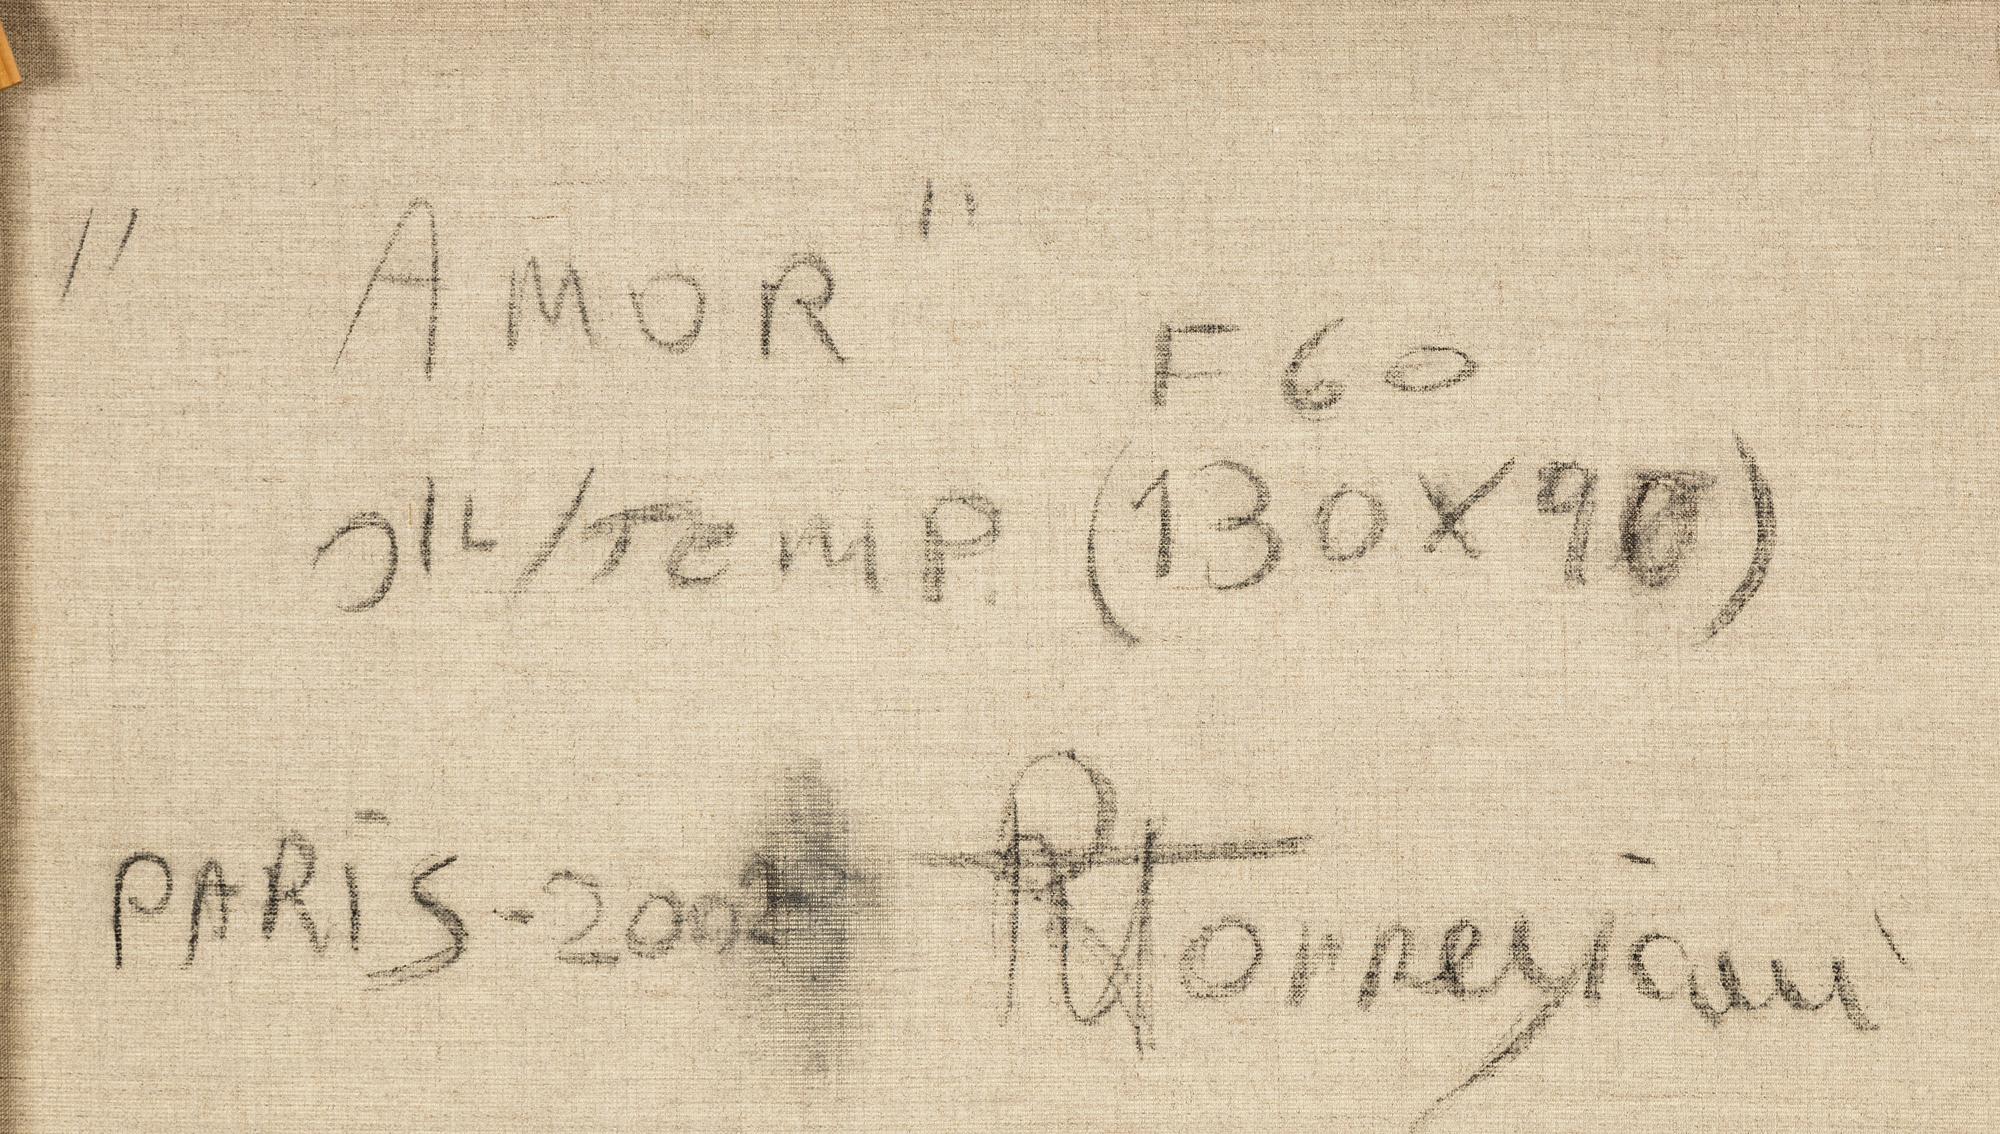 "AMOR"
F60
OIL/TEMP. (130X90)
PARIS-2002